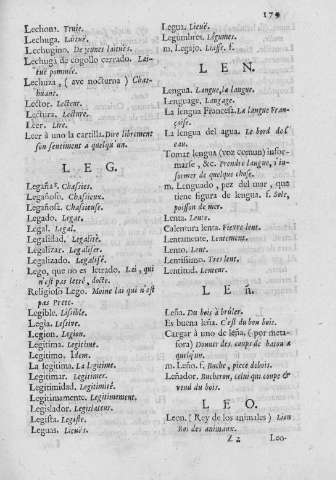 179
Lechona. Truïe.
Lechuga. Laituë.
Lechugino. De jeunes laituës.
Lechuga de cogollo cerrado. Lai-
tuë pommée.
Lechuza, (ave nocturna) Chat-
huant.
Lector. Lecteur.
Lectura. Lecture.
Leer. Lire.
Leer à uno la cartilla. Dire librement
son sentiment a quelqu'un.
L E G.
Legaña. Chassies.
Legañoso. Chassieux.
Legañosa. Chassieuse.
Legado. Legat.
Legal. Legal.
Legalidad. Legalité.
Legalizar. Legaliser.
Legalizado. Legalisé.
Lego, que no es letrado. Lai, qui
n'est pas letré, docte.
Religioso Lego. Moine lai qui n'est
pas Pretre.
Legible. Lisible.
Legia. Lessive.
Legion. Legion.
Legitima. Legitime.
Legitimo. Idem.
La legitima. La legitime.
Legitimar. Legitimer.
Legitimidad. Legitimité.
Legitimamente. Legitimement.
Legislador. Legislateur.
Legista. Legiste.
Leguas. Lieuës.
Legua. Lieuë.
Legumbres. Légumes.
m. Legajo. Liasse. f.
L E N.
Lengua. Langue, la langue.
Lenguage. Langage.
La lengua Francesa. La langue Fran-
çoise.
La lengua del agua. Le bord de l
eau.
Tomar lengua (voz comun) infor-
marse, &c. Prendre langue, s'in-
former de quelque chose.
m. Lenguado, pez del mar, que
tiene figura de lengua. f. Sole,
poisson de mer.
Lenta. Lente.
Calentura lenta. Fievre lente.
Lentamente. Lentement.
Lento. Lent.
Lentissimo. Tres lent.
Lentitud. Lenteur.
L E ñ.
Leña. Du bois à brûler.
Es buena leña. C'est du bon bois.
Cargar à uno de leña. (por meta-
fora) Donner des coups de baton a
quelqu'un.
m. Leño. f. Buche, piece de bois.
Leñador. Bucheron, celui qui coupe &
vend du bois.
L E O.
Leon. (Rey de los animales) Lion
Roi des animaux.
Z 2 Leo-